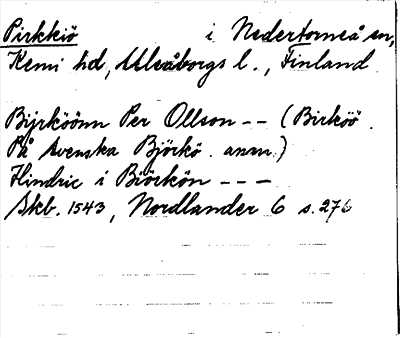 Pirkkiö i Nedertorneå sn,
Kemi hd, Uleåborgs l., Finland.
Bijrköönn Per Ollson -- (Birköö.
På svenska Björkö. anm.)
Hindric i Biörkön ---
Skb. 1543, Nordlander 6 s. 276